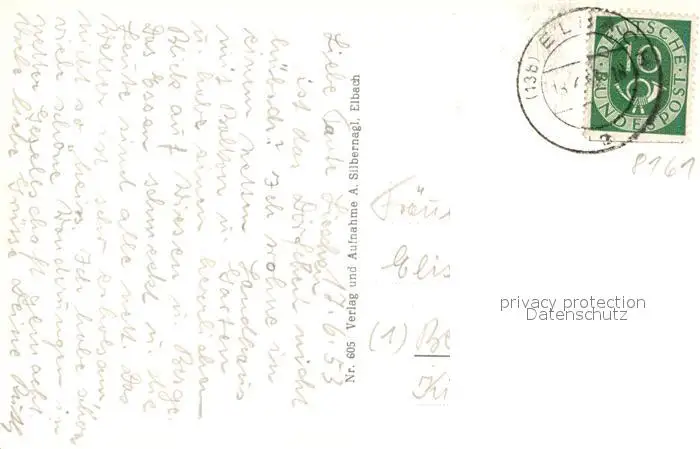 Liebe Tante Lieschen, 17.6.53
ist das Dörfchen nicht
hübsch? Ich wohne in
einem netten Landhaus
mit Balkon u. Garten
u. habe einen herrlichen
Blick auf Wiesen u. Berge.
Das Essen schmeckt u. die
Leute sind alle nett. Das
Wetter ist sehr erholsam,
nicht so heiß. Ich habe schon
viele schöne Wanderungen in
netter Gesellschaft gemacht.
Viele liebe Grüsse Deine Ruth
Nr. 605 Verlag und Aufnahme A. Silbernagl, Elbach
(13b) EL
a
DEUTSCHE
BUNDESPOST
10
8161
Fräu
Elis
(1) Be
Ki
privacy protection
Datenschutz